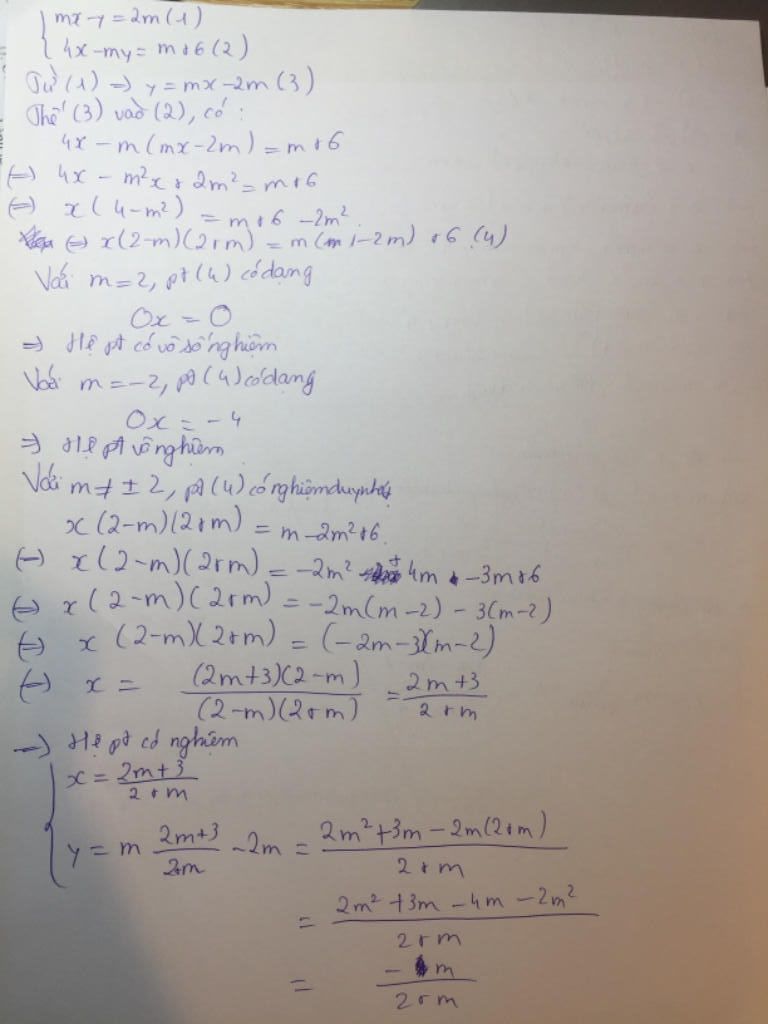 { mx - y = 2m (1)
4x - my = m + 6 (2)
Từ (1) => y = mx - 2m (3)
Thế (3) vào (2), có:
4x - m(mx - 2m) = m + 6
<=> 4x - m²x + 2m² = m + 6
<=> x(4 - m²) = m + 6 - 2m²
<=> x(2-m)(2+m) = m(1-2m) + 6 (4)
Với m = 2, pt (4) có dạng
0x = 0
=> Hệ pt có vô số nghiệm
Với m = -2, pt (4) có dạng
0x = -4
=> Hệ pt vô nghiệm
Với m ≠ ± 2, pt (4) có nghiệm duy nhất
x(2-m)(2+m) = m - 2m² + 6
<=> x(2-m)(2+m) = -2m² + 4m - 3m + 6
<=> x(2-m)(2+m) = -2m(m-2) - 3(m-2)
<=> x(2-m)(2+m) = (-2m-3)(m-2)
<=> x = (2m+3)(2-m) / (2-m)(2+m) = 2m+3 / 2+m
=> Hệ pt có nghiệm
{ x = 2m+3 / 2+m
y = m 2m+3 / 2+m - 2m = 2m² + 3m - 2m(2+m) / 2+m
= 2m² + 3m - 4m - 2m² / 2+m
= -m / 2+m